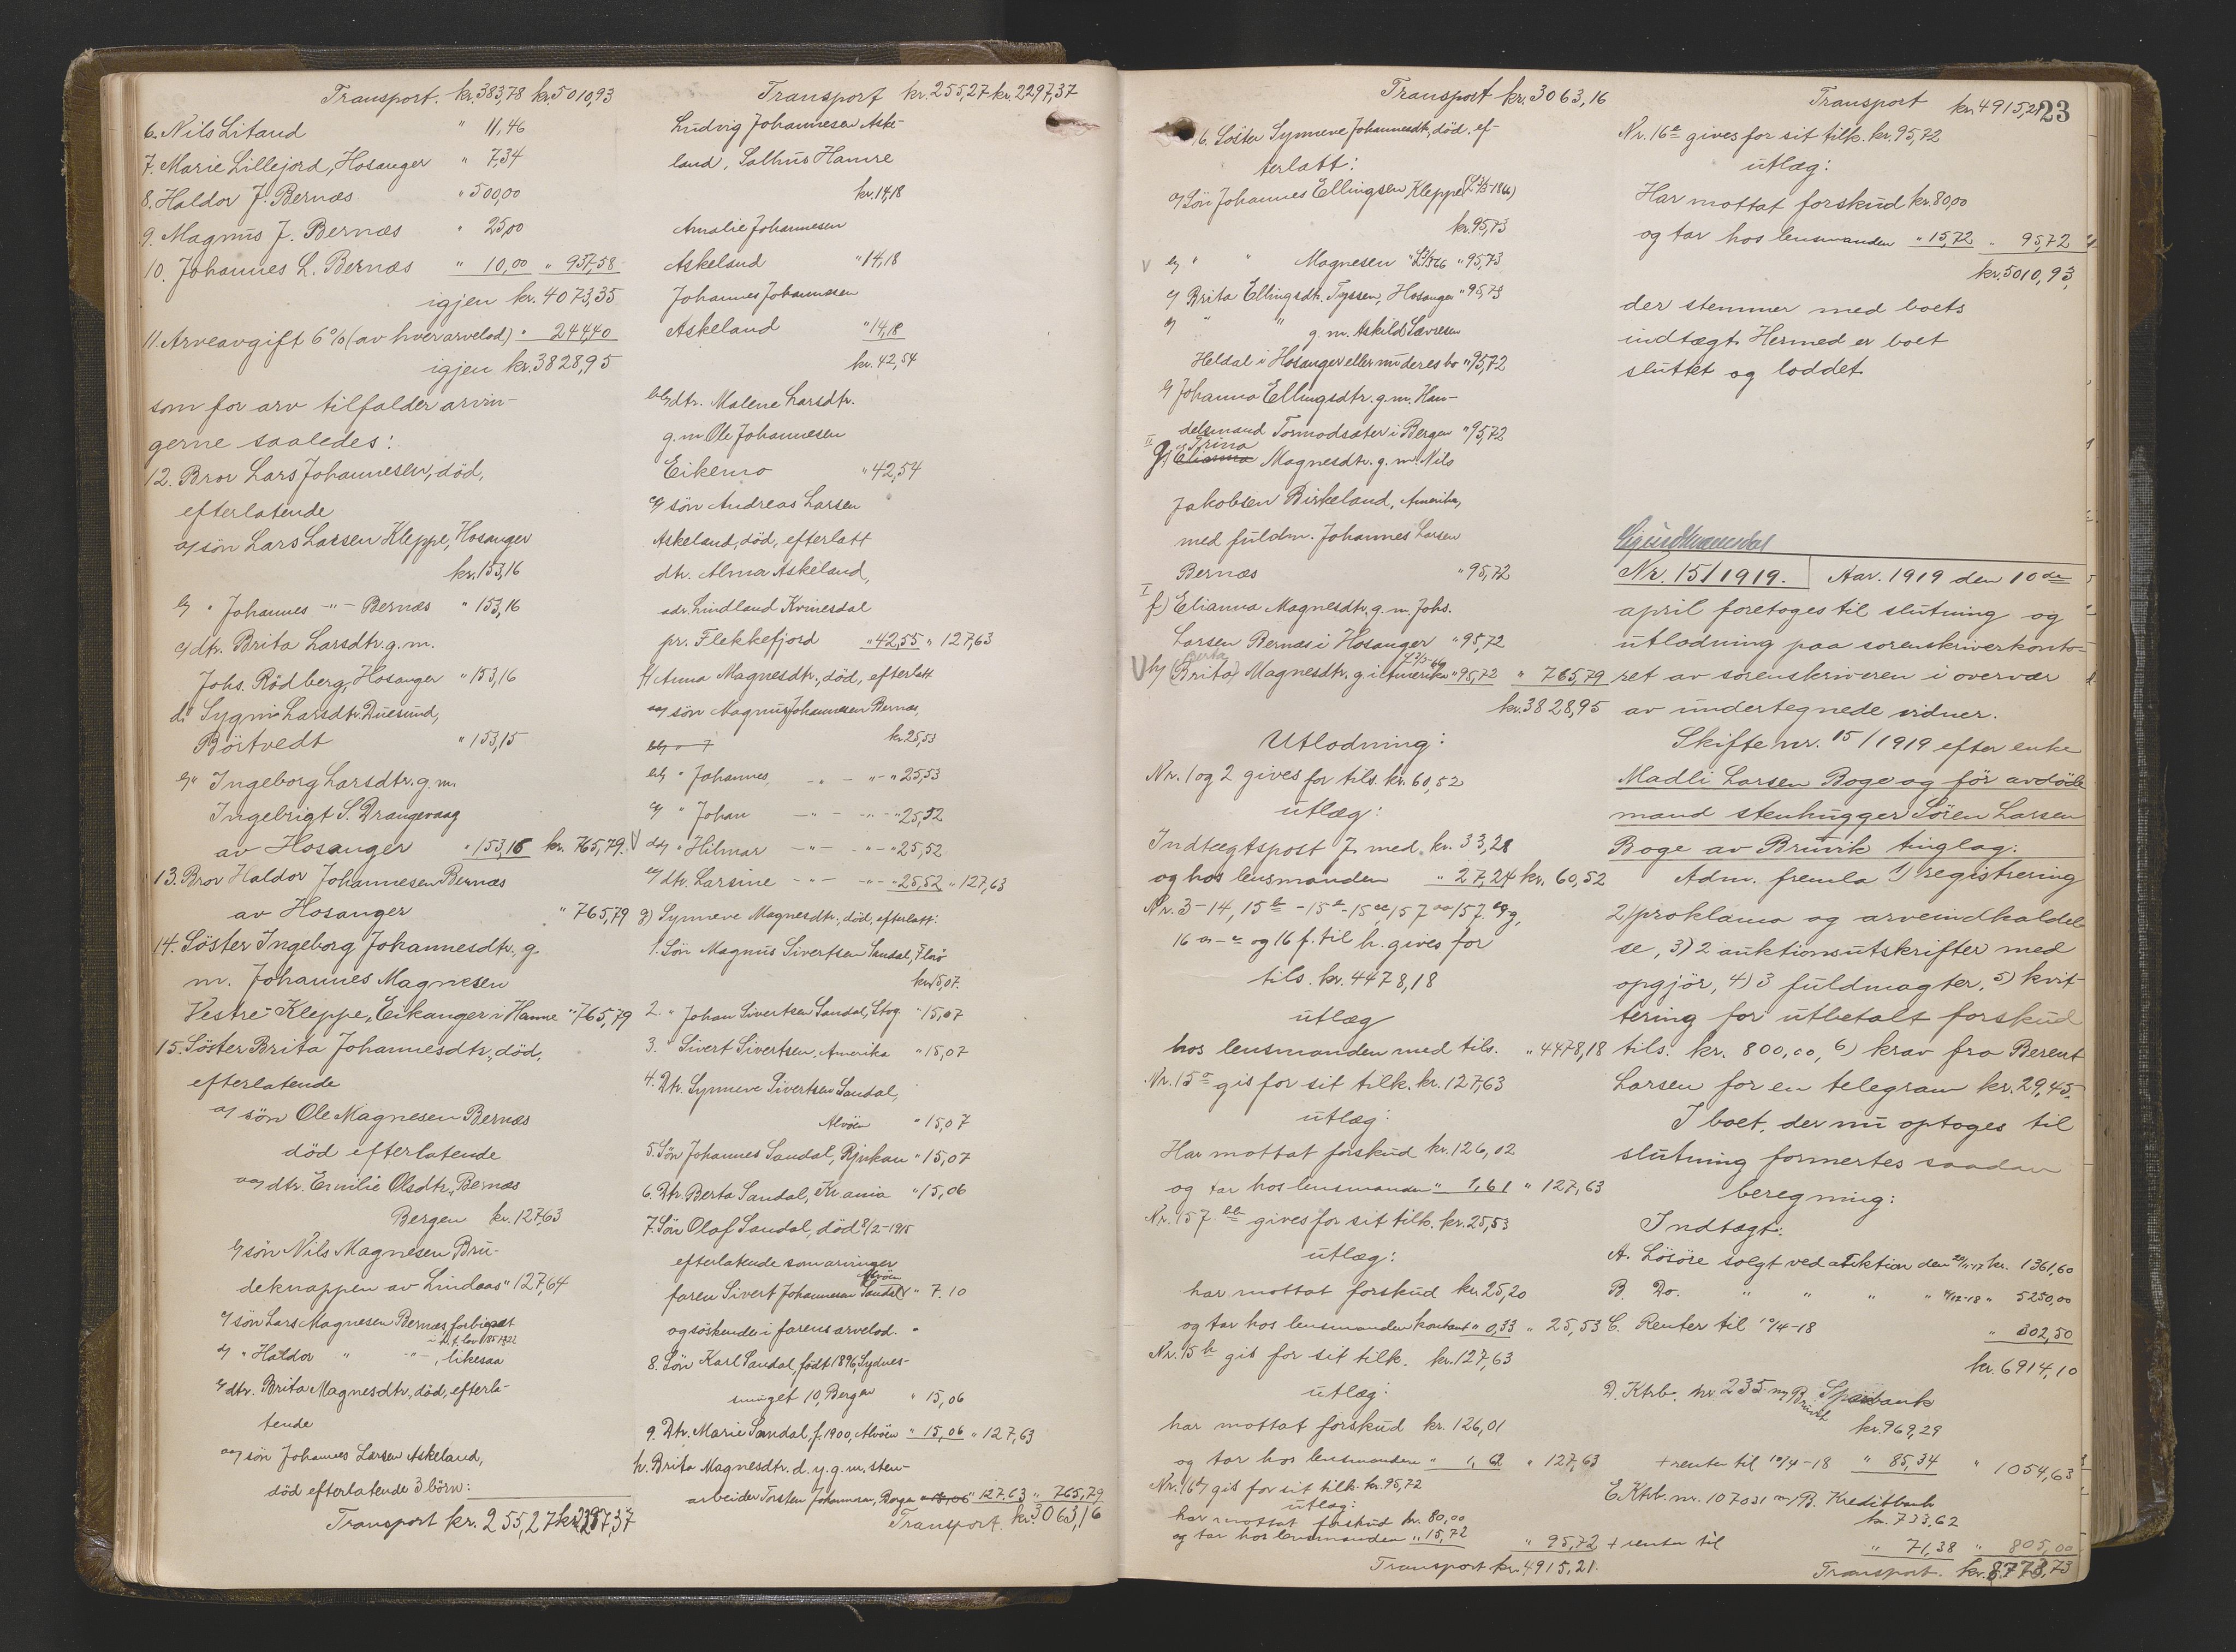 Transport. kr. 383,78 kr. 5010,93
6. Nils Litand " 11,46
7. Marie Lillejord, Hosanger " 7,34
8. Haldor J. Bernæs " 500,00
9. Magnus J. Bernæs " 25,00
10. Johannes L. Bernæs " 10,00 " 937,58
igjen kr. 4073,35
11. Arveavgift 6% (av hver arvelod) " 244,40
igjen kr. 3828,95
som for arv tilfalder arvin-
gerne saaledes:
12. Bror Lars Johannesen, død,
efterlatende
a/ søn Lars Larsen Kleppe, Hosanger
kr. 153,16
b/ " Johannes -"- Bernæs " 153,16
c/ dtr. Brita Larsdtr. g.m.
Johs. Rödberg, Hosanger " 153,16
d/" Sygni Larsdtr. Duesund,
Börtvedt " 153,15
e/" Ingeborg Larsdtr. g.m.
Ingebrigt S. Drangevaag
av Hosanger " 153,16 kr. 765,79
13. Bror Haldor Johannesen Bernæs
av Hosanger " 765,79
14. Söster Ingeborg Johannesdtr. g.
m. Johannes Magnesen
Vestre Kleppe, Eikanger i Hamre " 765,79
15. Söster Brita Johannesdtr., död,
efterlatende
a/ sön Ole Magnesen Bernæs
död efterlatende
aa/ dtr. Emilie Olsdtr. Bernæs
Bergen kr. 127,63
b/ sön Nils Magnesen Bru-
deknappen av Lindaas " 127,64
c/ sön Lars Magnesen Bernæs, forbigaat
d/ " Haldor " -"-, likesaa
e/ dtr. Brita Magnesdtr., död, efterla-
tende
aa/ sön Johannes Larsen Askeland,
död efterlatende 3 börn:
Transport kr. 255,27 kr. 2297,37
Transport kr. 255,27 kr. 2297,37
Ludvig Johannesen Aske-
land, Salhus Hamre
kr. 14,18
Amalie Johannesen
Askeland " 14,18
Johannes Johannesen
Askeland " 14,18
kr. 42,54
bb/ dtr. Malene Larsdtr.
g.m. Ole Johannesen
Eikemo " 42,54
cc/ sön Andreas Larsen
Askeland, död, efterlatt
dtr. Alma Askeland,
adr. Lindland Kvinesdal
pr. Flekkefjord " 42,55 " 127,63
f/ Anna Magnesdtr., död, efterlatt
aa/ sön Magnus Johannesen Bernæs,
kr. 25,53
bb/ " J
bb/ " Johannes -"- -"- " 25,53
cc/ " Johan -"- -"- " 25,52
V dd/ " Hilmar -"- -"- " 25,52
ee/ dtr. Larsine -"- -"- " 25,52 " 127,63
g) Synneve Magnesdtr., död, efterlatt:
1. Sön Magnus Sivertsen Sandal, Florö
kr. 15,07.
2. " Johan Sivertsen Sandal, Stog " 15,07
3. " Sivert Sivertsen, Amerika " 15,07
4. Dtr. Synneve Sivertsen Sandal,
Alvöen " 15,07
5. Sön Johannes Sandal, Rjukan " 15,07
6. Dtr. Berta Sandal, Kr.ania " 15,06
7. Sön Olaf Sandal, död 8/2-1915
efterlatende som arvinger
faren Sivert Johannesen Sandal Alvöen " 7.10
og söskende i farens arvelod. "
8. Sön Karl Sandal, födt 1896, Sydnes-
smuget 10, Bergen " 15,06
9. Dtr. Marie Sandal, f. 1900, Alvöen " 15,06 " 127,63
h. Brita Magnesdtr. d.y. g.m. sten-
arbeider Torsten Johannesen, Bergen " 127,63 " 765,79
Transport. kr. 3063,16
Transport kr. 3063,16
16. Söster Synneve Johannesdtr., död, ef-
terlatt:
a/ Sön Johannes Ellingsen Kleppe
kr. 95,73
V b/ " " Magnesen " 95,73
c/ Brita Ellingsdtr. Tyssen, Hosanger " 95,73
d/ " " g.m. Askild Larsen
Heldal i Hosanger eller nu deres bo " 95,72
e/ Johanna Ellingsdtr. g.m. Han-
delsmand Tormodsæter i Bergen " 95,72
II g/ Trina Elianna Magnesdtr. g.m. Nils
Jakobsen Birkeland, Amerika,
med fuldm. Johannes Larsen
Bernæs " 95,72
I f) Elianna Magnesdtr. g.m. Johs.
Larsen Bernæs i Hosanger " 95,72
V h/ (Brita) Berta Magnesdtr. g. i Amerika " 95,72 " 765,79
kr. 3828,95
Utlodning:
Nr. 1 og 2 gives for tils. kr. 60,52
utlæg:
Indtægtspost J. med kr. 33,28
og hos lensmanden " 27,24 kr. 60,52
Nr. 3-14, 15 b - 15 e - 15 , 15 f aa, 15 f , g,
16 a - c og 16 f. til h. gives for
tils. kr. 4478,18
utlæg
hos lensmanden med tils. " 4478,18
Nr. 15 a gis for sit tilk. kr. 127,63
utlæg:
Har mottat forskud kr. 126,02
og tar hos lensmanden " 1,61 " 127,63
Nr. 15 f. bb gives for sit tilk. kr. 25,53
utlæg:
har mottat forskud kr. 25,20
og tar hos lensmanden kontant " 0,33 " 25,53
Nr. 15 h gis for sit tilk. kr. 127,63
utlæg:
har mottat forskud kr. 126,01
og tar hos lensmanden " 1,62 " 127,63
Nr. 16 d/ gis for sit tilk. kr. 95,72
utlæg:
har mottat forskud kr. 80,00
og tar hos lensmanden " 15,72 " 95,72
Transport kr. 4915,21.
Transport kr. 4915,21
23
Nr. 16 e gives for sit tilk. kr. 95,72
utlæg:
Har mottat forskud kr. 80,00
og tar hos lensmanden " 15,72 " 95,72
kr. 5010,93,
der stemmer med boets
indtægt. Hermed er boet
sluttet og loddet.
Nr. 15/1919. Aar. 1919 den 10de
april foretoges til slutning og
utlodning paa sorenskriverkonto-
ret av sorenskriveren i overvær
av undertegnede vidner.
Skifte nr. 15/1919 efter enke
Madli Larsen Boge og för avdöde
mand stenhugger Sören Larsen
Boge av Bruvik tinglag.
Adm. fremla 1) registrering
2) proklama og arveindkaldel-
se, 3) 2 auktionsutskrifter med
opgjör, 4) 3 fuldmagter, 5) kvit-
tering for utbetalt forskud
tils. kr. 800,00, 6) krav fra Berent
Larsen for en telegram kr. 29,45.
I boet, der nu optoges til
slutning formertes saadan
beregning:
Indtægt:
A. Lösöre solgt ved auktion den 20/11-17 kr. 1361,60
B. Do. " " " " 5250,00
C. Renter til 10/4-18 " 302,50
kr. 6914,10
D. Ktrb. nr. 235 m/ Bruvik Sparebank
kr. 969,29
+ renter til 10/4-18 " 85,34 " 1054,63
E. Ktrb. nr. 107031 m/ B. Kreditbank
kr. 733,62
+ renter til " 71,38 " 805,00
Transport. kr. 8773,73